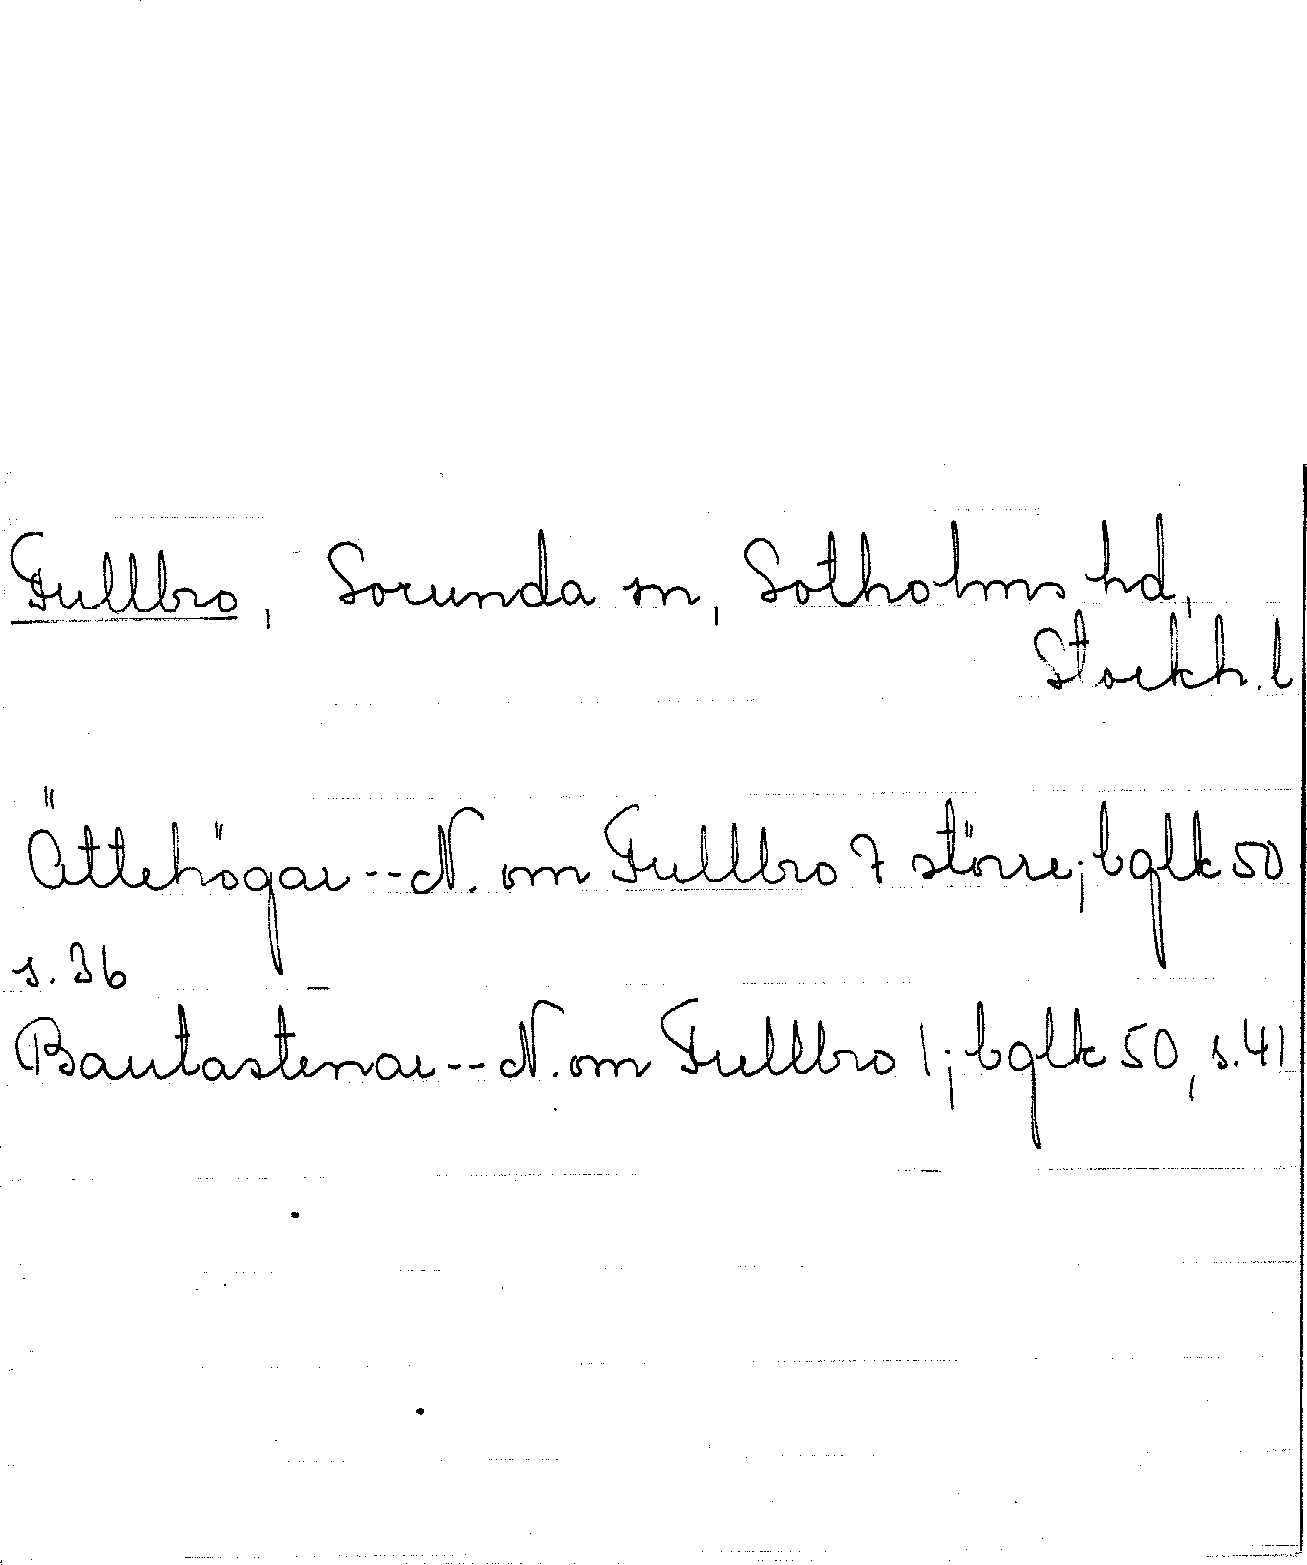 Fullbro, Sorunda sn, Sotholms hd,
Stockh. l
Ättehögar -- N. om Fullbro 7 större; bglk 50
s. 36
Bautastenar -- N. om Fullbro 1; bglk 50, s. 41